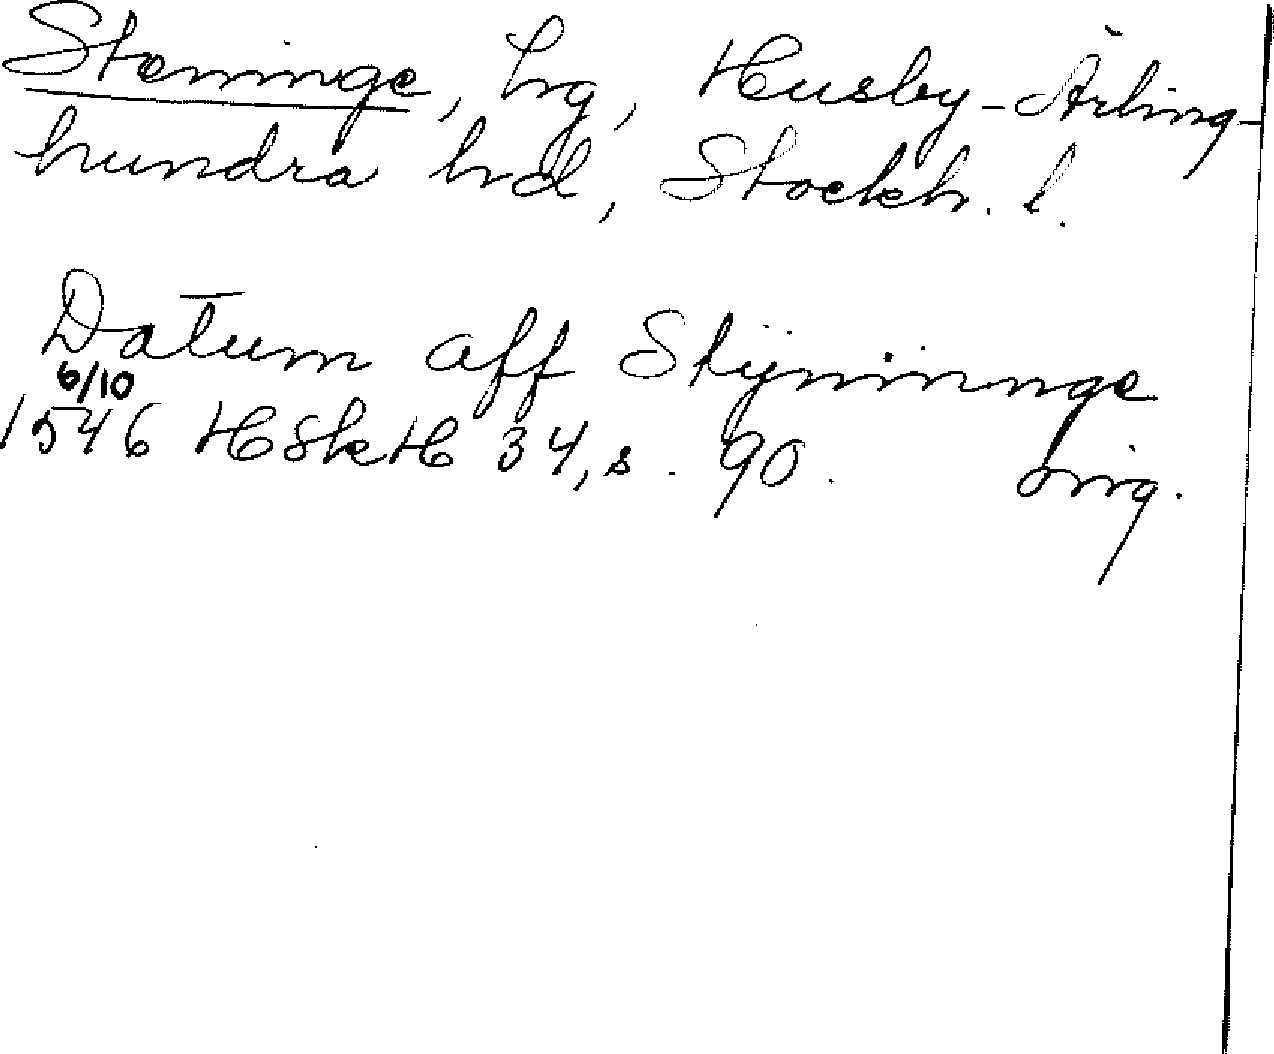 Steninge, hrg, Husby-Ärling-
hundra hd, Stockh. l.
Datum aff Stijninnge
6/10
1546 HSkH 34, s. 90. orig.